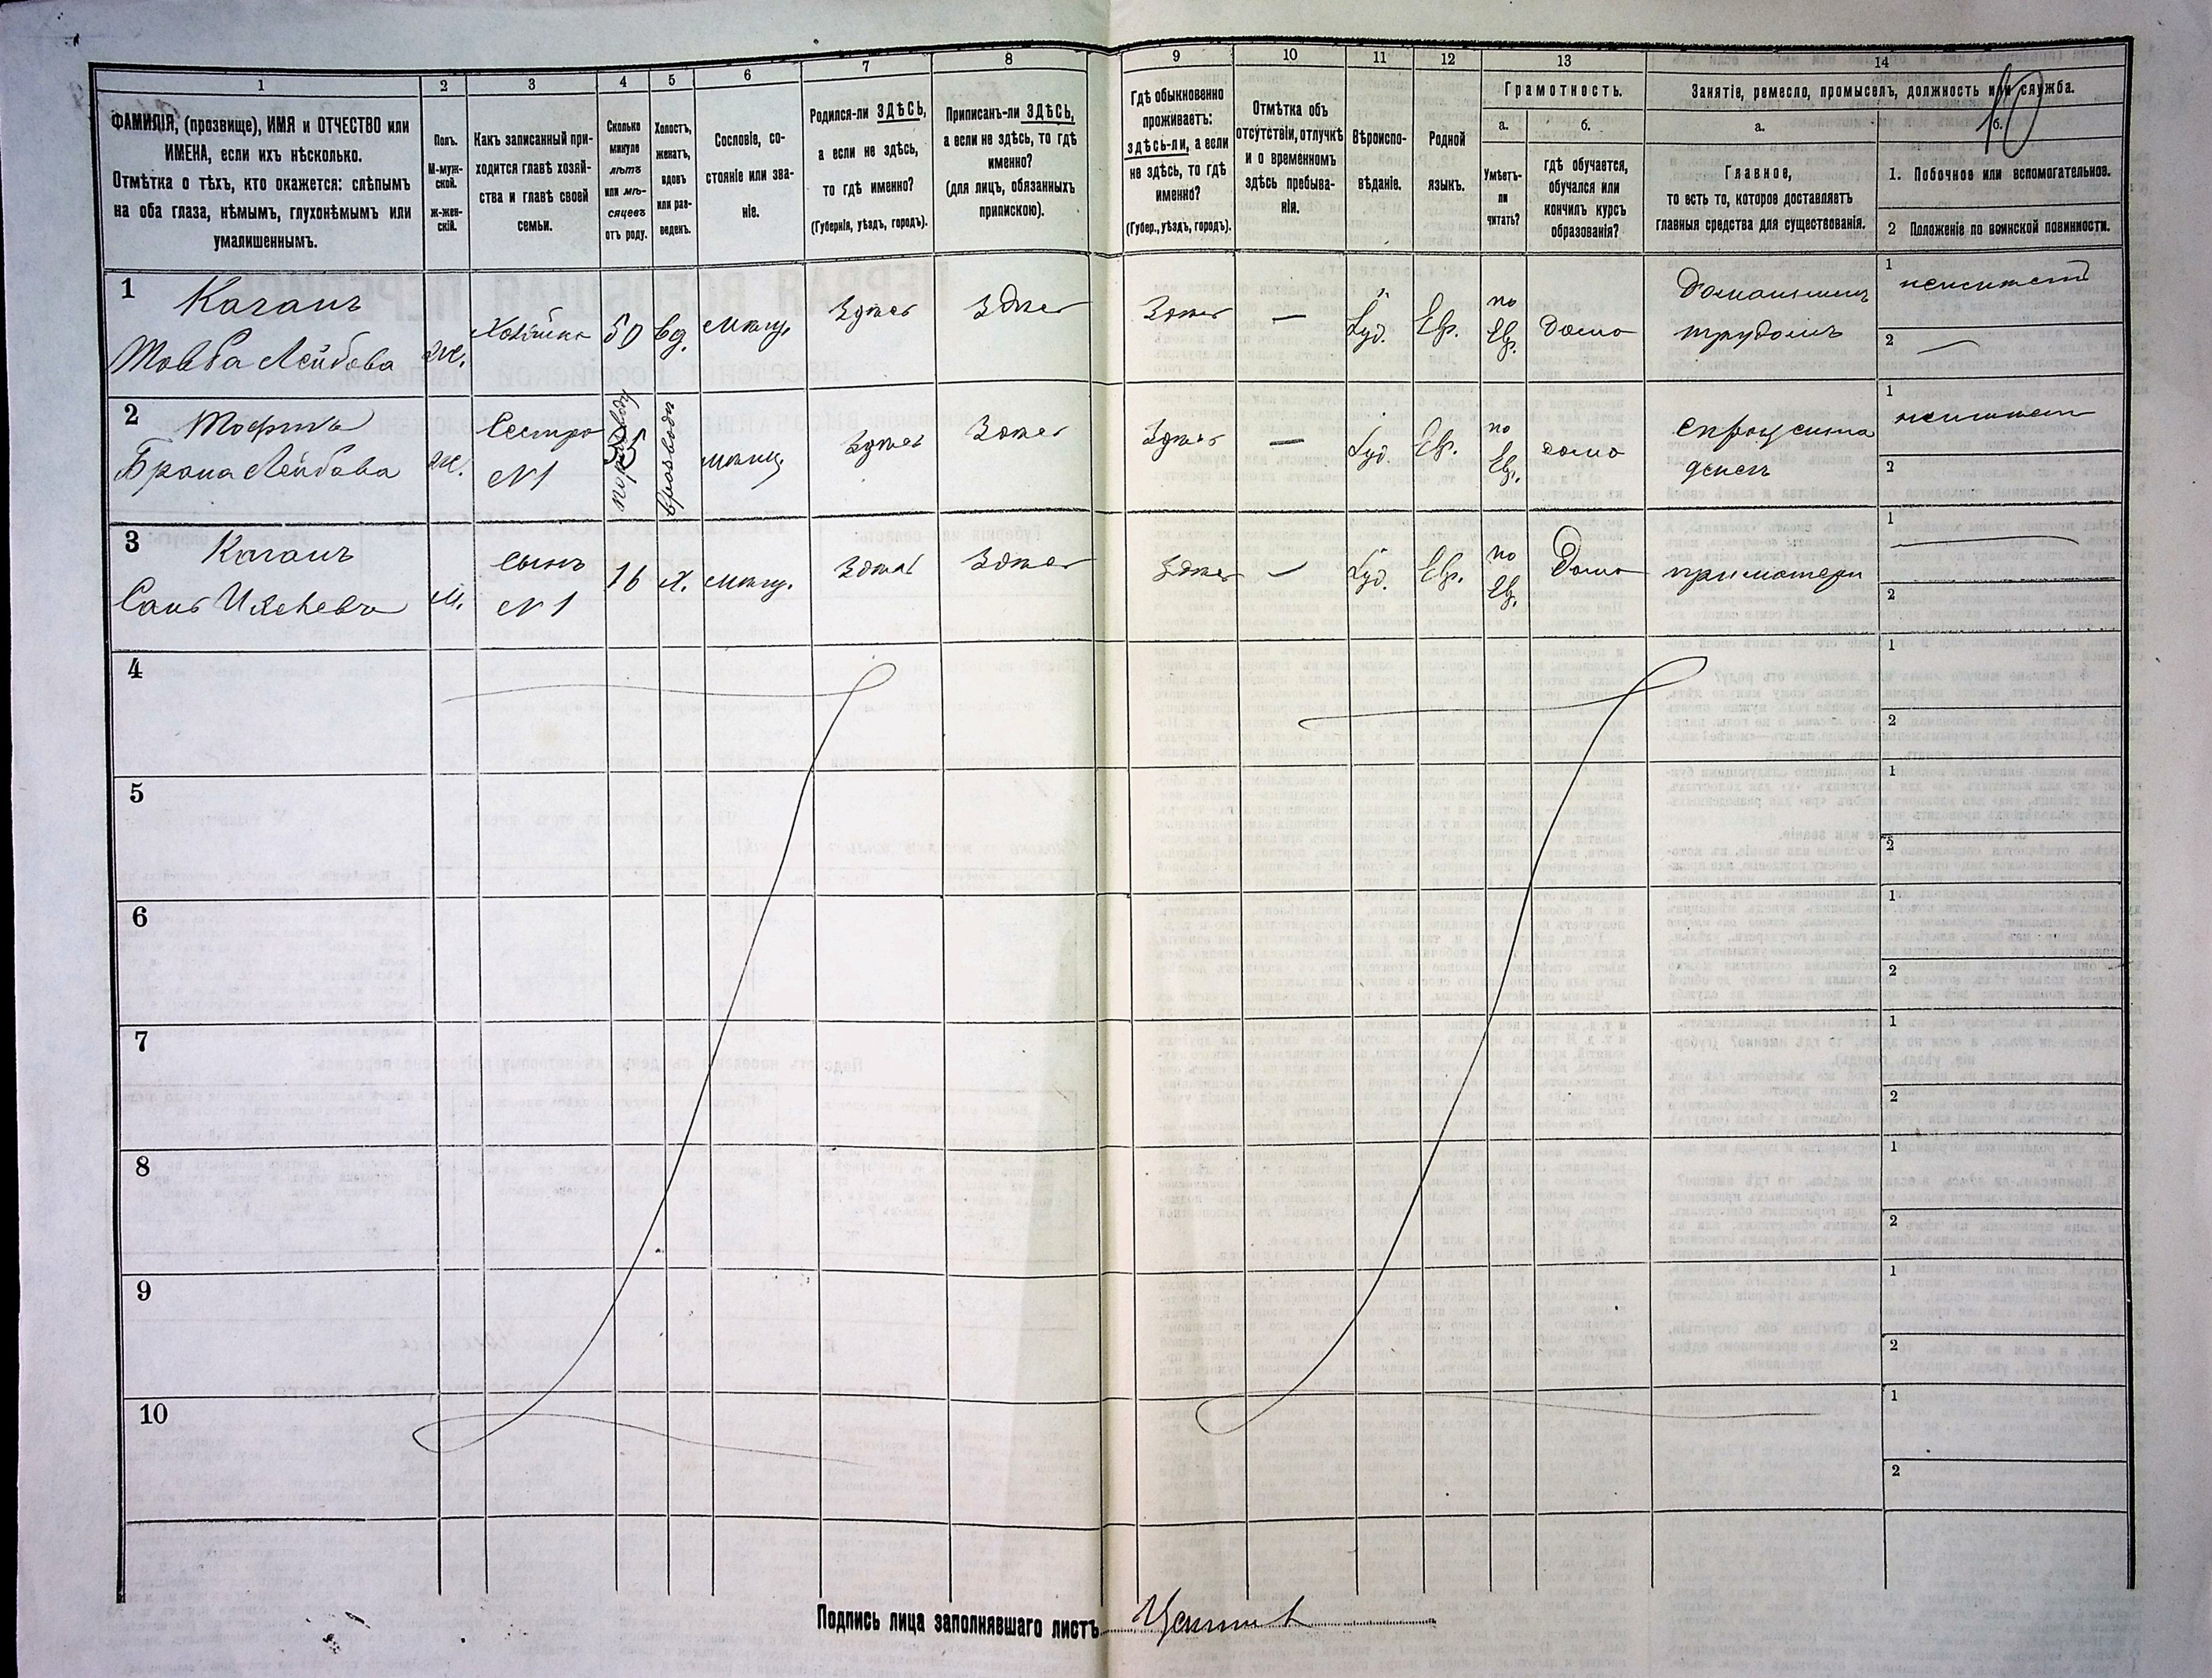 10
1
2
3
4
5
6
7
8
9
10
11
12
13
14
ФАМИЛІЯ, (прозвище), ИМЯ и ОТЧЕСТВО или
ИМЕНА, если ихъ нѣсколько.
Отмѣтка о тѣхъ, кто окажется: слѣпымъ
на оба глаза, нѣмымъ, глухонѣмымъ или
умалишеннымъ.
Полъ.
М-муж-
ской.
ж-жен-
скій.
Какъ записанный при-
ходится главѣ хозяй-
ства и главѣ своей
семьи.
Сколько
минуло
лѣтъ
или мѣ-
сяцевъ
отъ роду.
Холостъ,
женатъ,
вдовъ
или раз-
веденъ.
Сословіе, со-
стояніе или зва-
ніе.
Родился-ли ЗДѢСЬ,
а если не здѣсь,
то гдѣ именно?
(Губернія, уѣздъ, городъ).
Приписанъ-ли ЗДѢСЬ,
а если не здѣсь, то гдѣ
именно?
(для лицъ, обязанныхъ
припискою).
Гдѣ обыкновенно
проживаетъ:
здѣсь-ли, а если
не здѣсь, то гдѣ
именно?
(Губер., уѣздъ, городъ).
Отмѣтка объ
отсутствіи, отлучкѣ
и о временномъ
здѣсь пребыва-
ніи.
Вѣроиспо-
вѣданіе.
Родной
языкъ.
Грамотность.
а.
б.
Умѣетъ-
ли
читать?
гдѣ обучается,
обучался или
кончилъ курсъ
образованія?
Занятіе, ремесло, промыселъ, должность или служба.
а.
б.
Главное,
то есть то, которое доставляетъ
главныя средства для существованія.
1. Побочное или вспомогательное.
2 Положеніе по воинской повинности.
1
Каганъ
Товба Лейбова
ж.
Хозяйка
50
вд.
мѣщ.
Здѣсь
Здѣсь
Здѣсь
—
Іуд.
Евр.
по
Евр.
Дома
Домашнимъ
трудомъ
1
2
—
2
Брайна Лейбова
ж.
Сестра
№1
мѣщ.
Здѣсь
Здѣсь
Здѣсь
—
Іуд.
Евр.
по
Евр.
дома
денегъ
1
2
3
Каганъ
м.
сынъ
№1
16
х.
мѣщ.
Здѣсь
Здѣсь
Здѣсь
—
Іуд.
Евр.
по
Евр.
Дома
при матери
1
—
2
4
1
2
5
1
2
6
1
2
7
1
2
8
1
2
9
1
2
10
1
2
Подпись лица заполнявшаго листъ